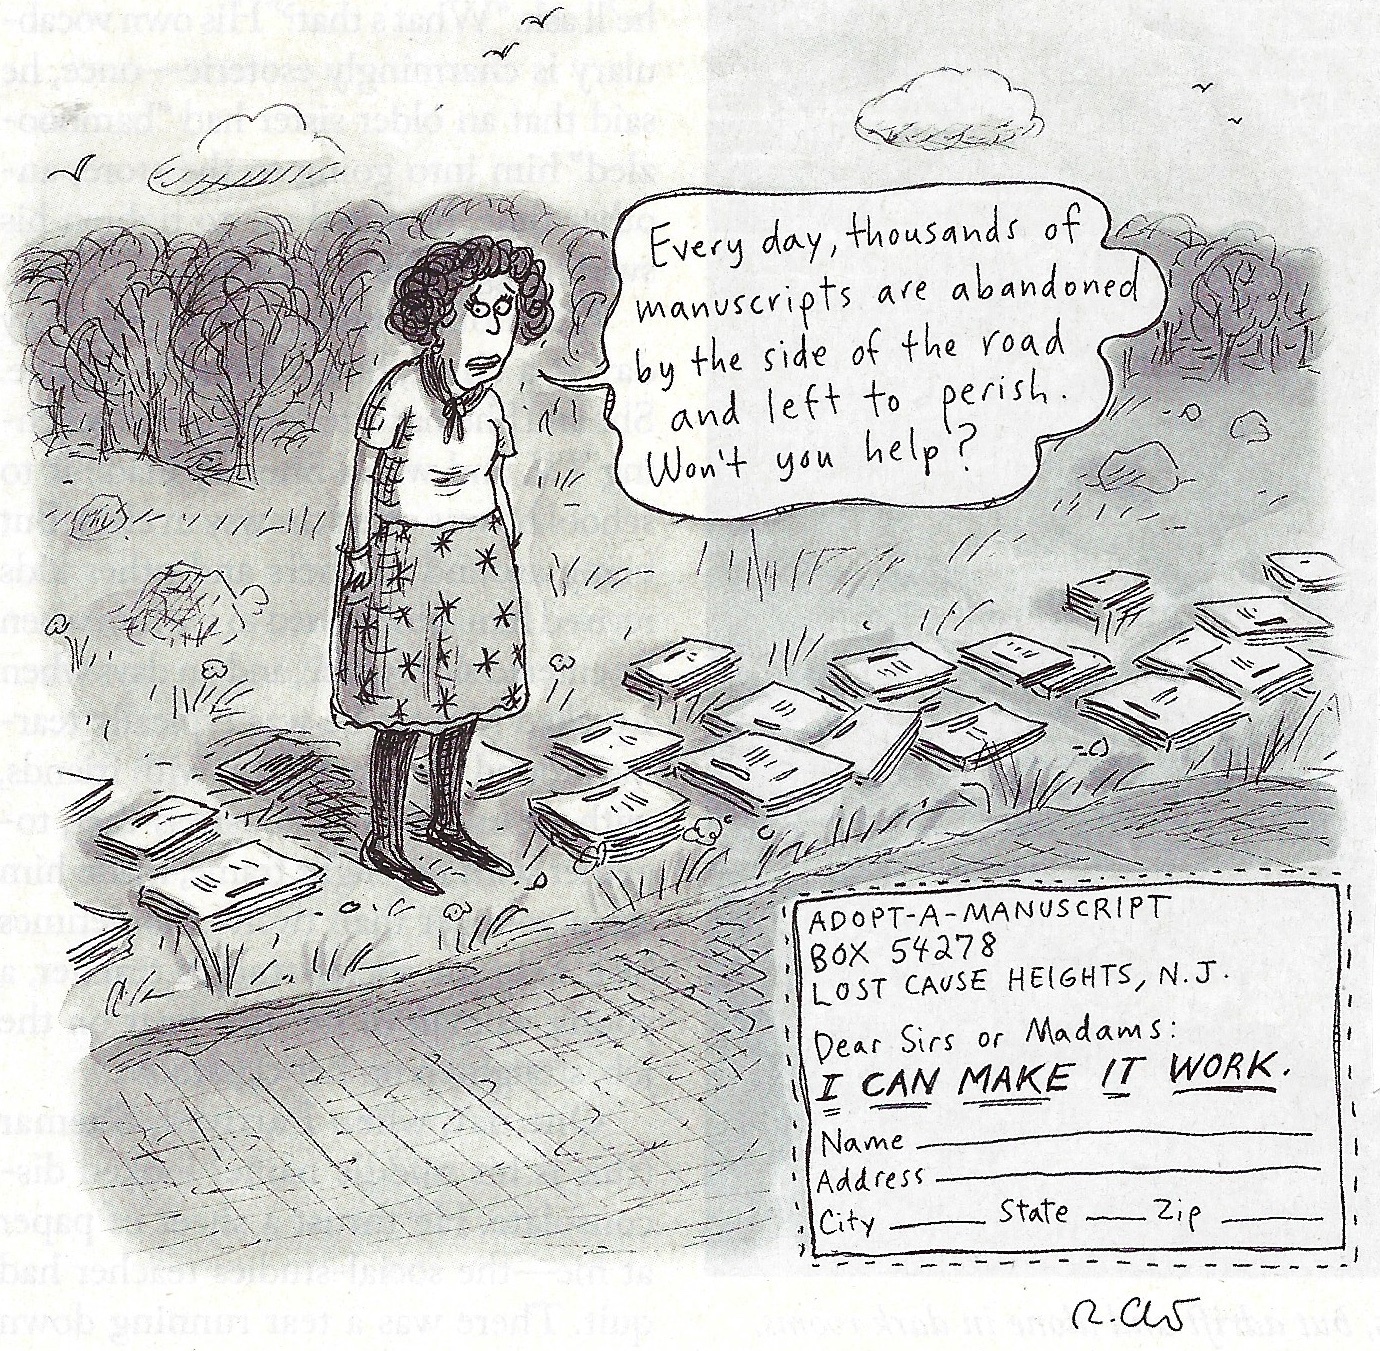 Every day, thousands of
manuscripts are abandoned
by the side of the road
and left to perish.
Won't you help?
ADOPT-A-MANUSCRIPT
BOX 54278
LOST CAUSE HEIGHTS, N.J.
Dear Sirs or Madams:
I CAN MAKE IT WORK.
Name
Address
City State Zip
R. Ch